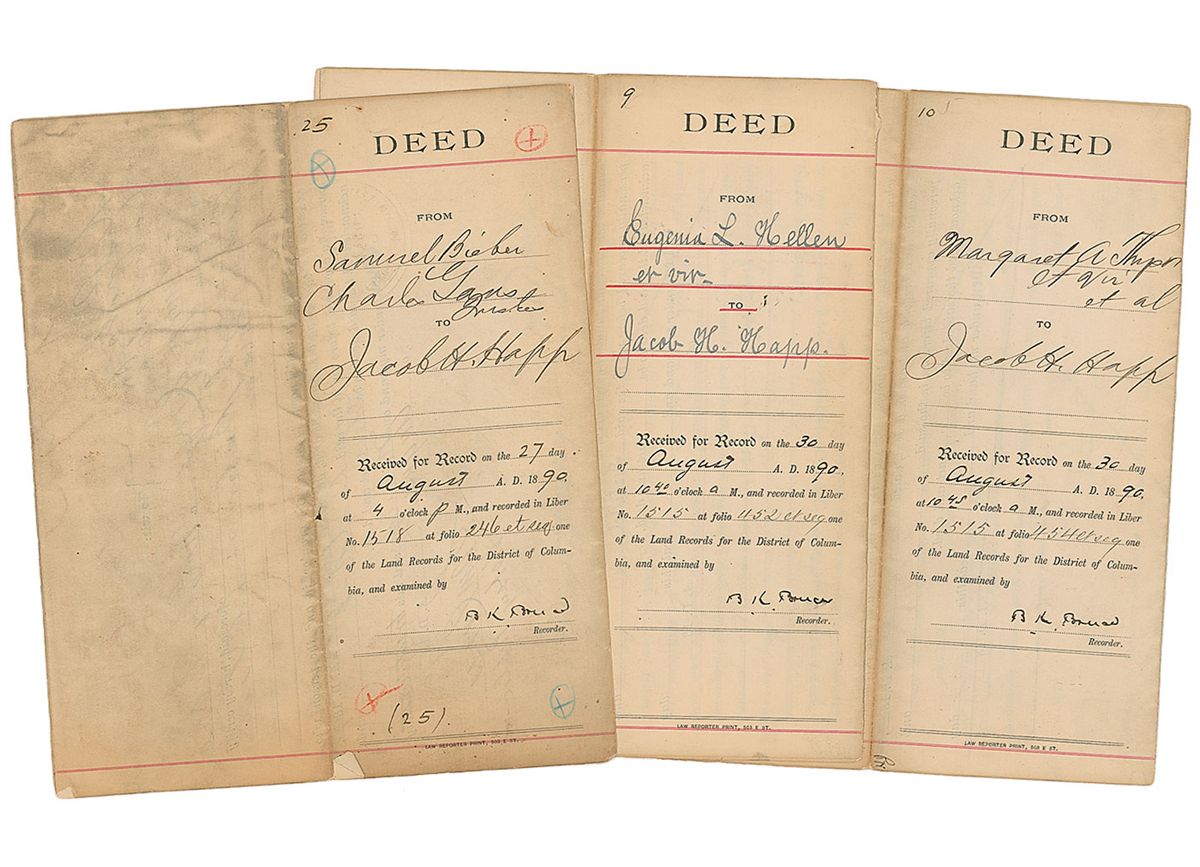 25
DEED
FROM
Samuel Bieber
Charles
Trustees
TO
Jacob H. Happ
Received for Record on the 27 day
of August A. D. 1890,
at 4 o'clock p M., and recorded in Liber
No. 1518 at folio 246 et seq. one
of the Land Records for the District of Colum-
bia, and examined by
B K Bruce
Recorder.
(25).
LAW REPORTER PRINT, 503 E ST.
9
DEED
FROM
Eugenia L. Hellen
et vir
TO
Jacob H. Happ.
Received for Record on the 30 day
of August A. D. 1890,
at 10 40 o'clock a M., and recorded in Liber
No. 1515 at folio 452 et seq one
of the Land Records for the District of Colum-
bia, and examined by
B K Bruce
Recorder.
LAW REPORTER PRINT, 503 E ST.
10
DEED
FROM
Margaret A
et vir
et al
TO
Jacob H. Happ
Received for Record on the 30 day
of August A. D. 1890,
at 10 45 o'clock a M., and recorded in Liber
No. 1515 at folio 454 et seq one
of the Land Records for the District of Colum-
bia, and examined by
B K Bruce
Recorder.
LAW REPORTER PRINT, 503 E ST.